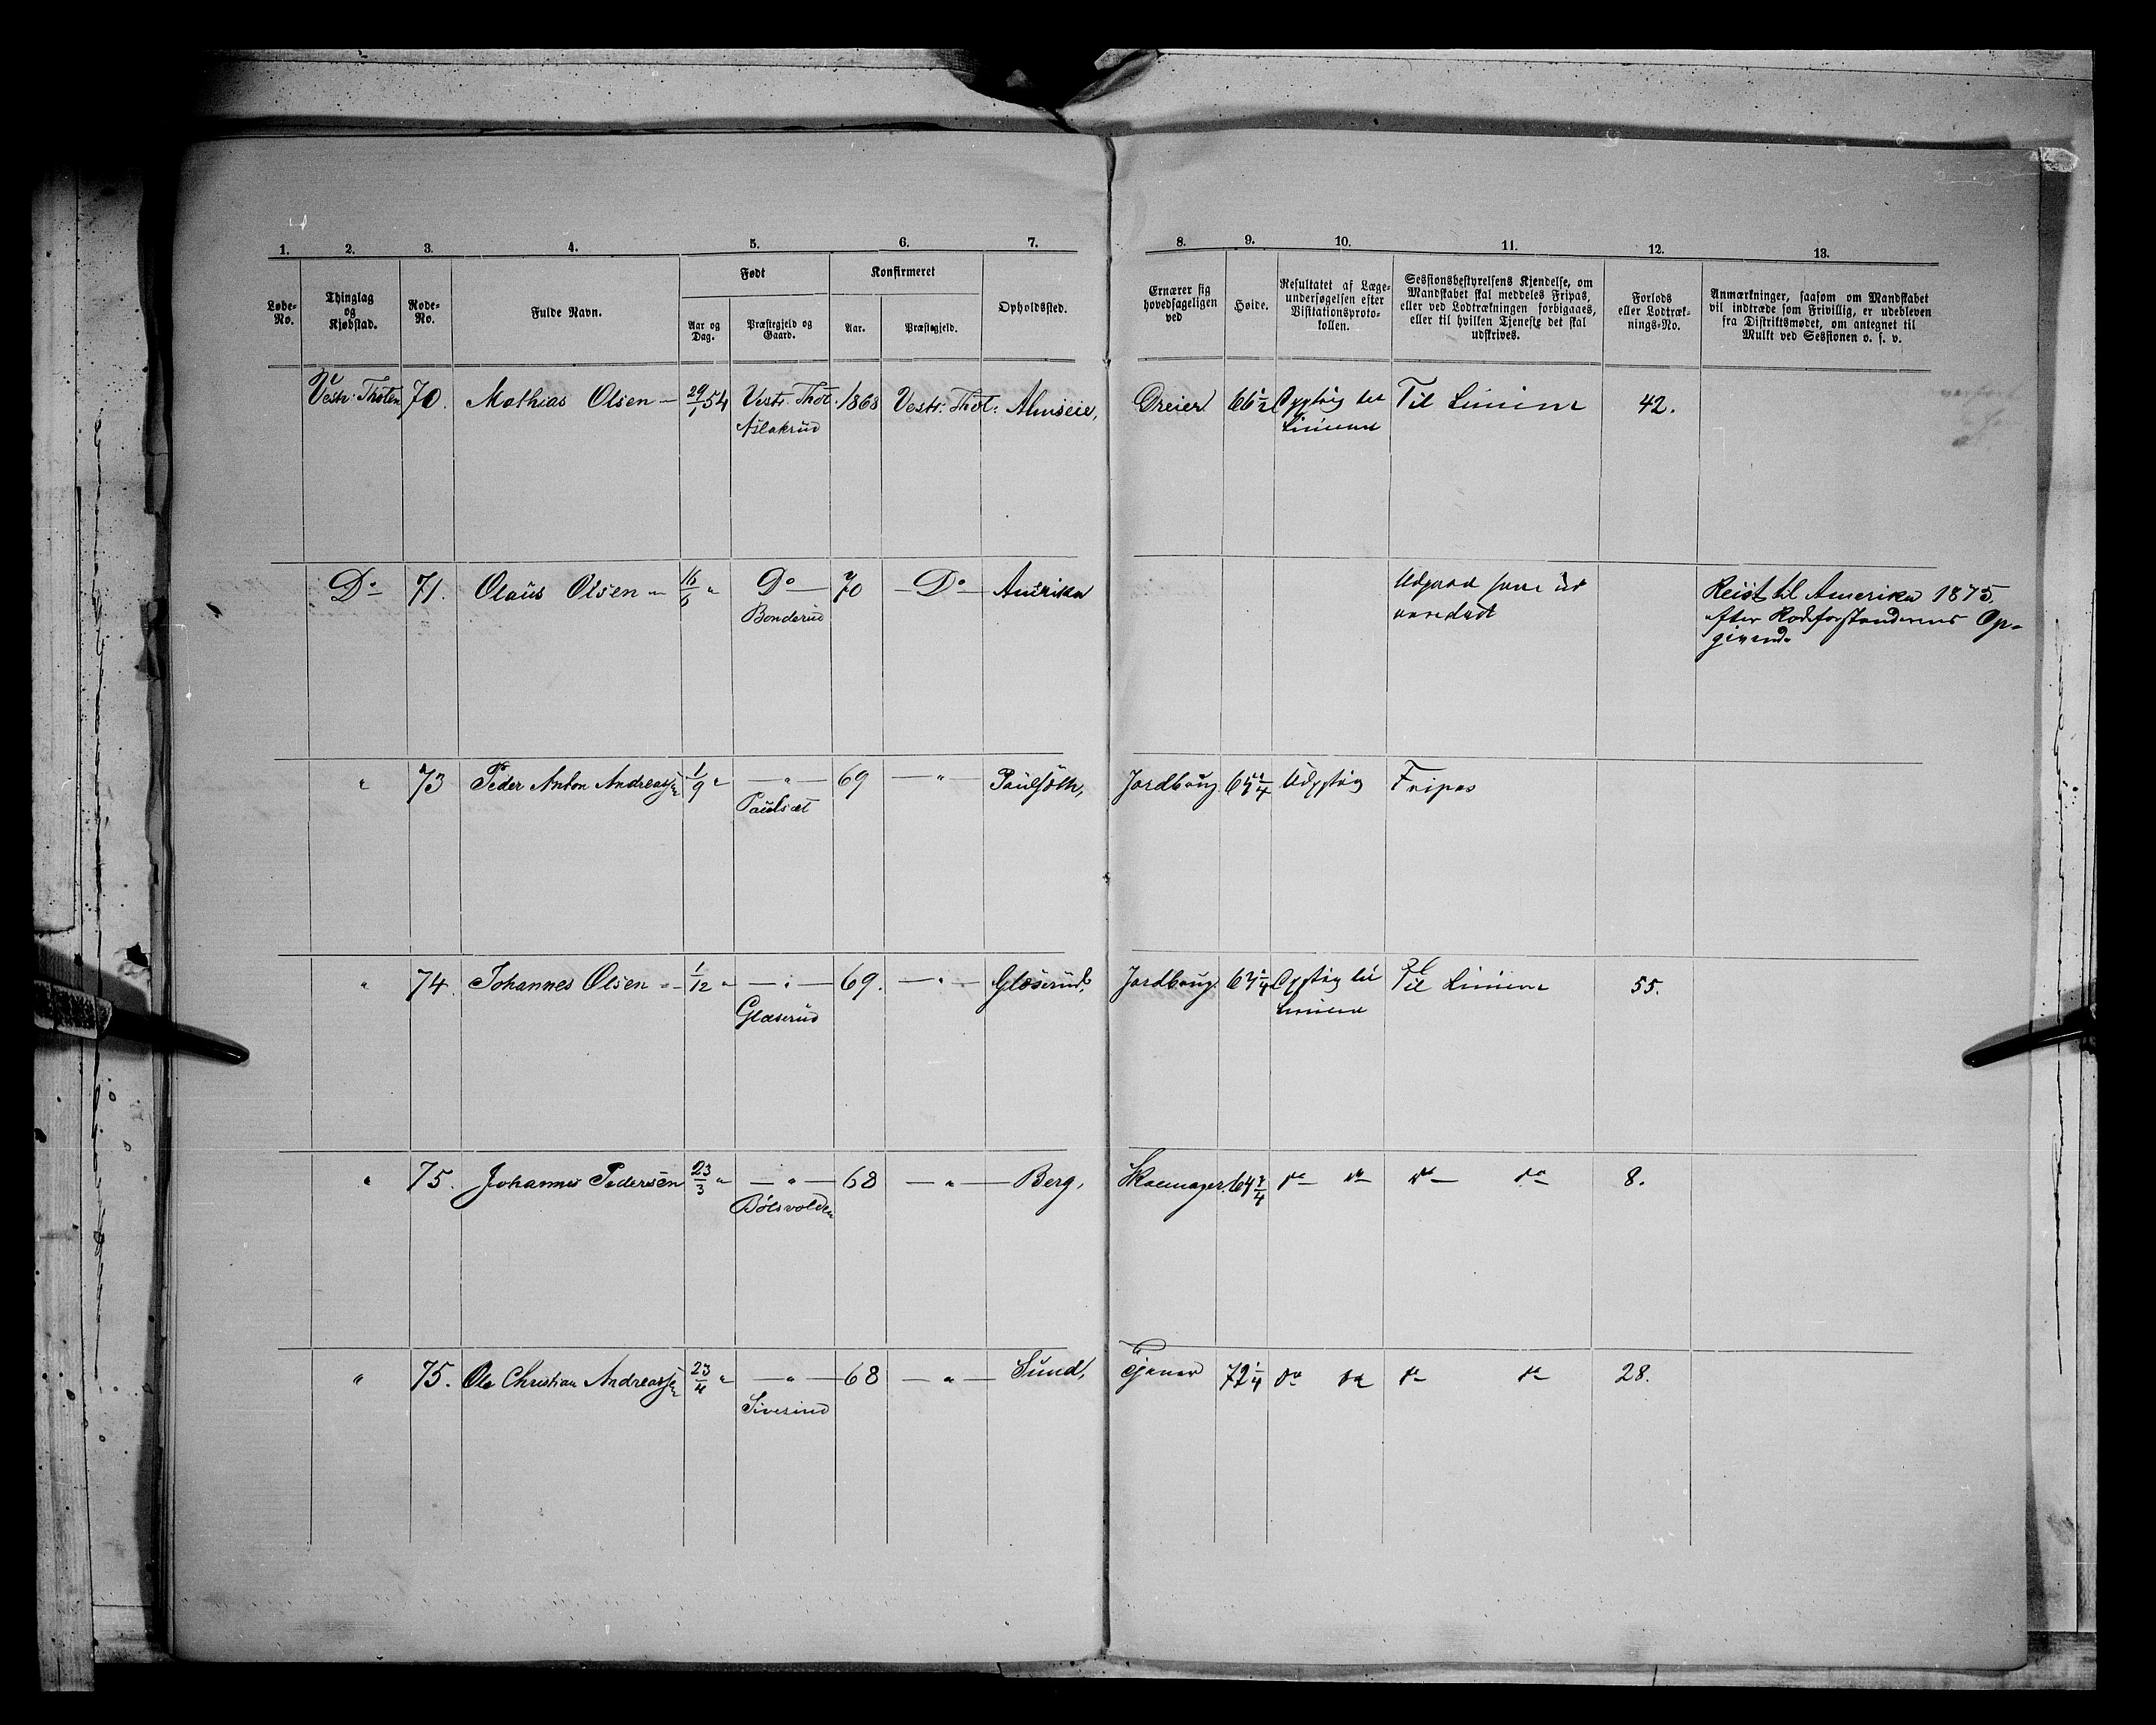 1. 2. 3. 4. 5. 6. 7. 8. 9. 10. 11. 12. 13.
Løbe-No.
Thinglag og Kjøbstad.
Rode-No.
Fulde Navn.
Født
Aar og Dag.
Præstegjeld og Gaard.
Konfirmeret
Aar.
Præstegjeld.
Opholdssted.
Ernærer sig hovedsageligen ved
Høide.
Resultatet af Læge-undersøgelsen efter Visitationsproto-kollen.
Sessionsbestyrelsens Kjendelse, om Mandskabet skal meddeles Fripas, eller ved Lodtrækningen forbigaaes, eller til hvilken Tjeneste det skal udskrives.
Forlods eller Lodtræk-nings-No.
Anmærkninger, saasom om Mandskabet vil indtræde som Frivillig, er udebleven fra Distriktsmødet, om antegnet til Mulkt ved Sessionen o. s. v.
Vestr. Thoten 70. Mathias Olsen 29/1 54 Vestr. Thot. 1868 Vestr. Thot. Almseie, Dreier 66 1/2 Dygtig til Til Linien 42.
Aslakrud Linien
Do 71. Olaus Olsen 16/6 " Do 70 Do Amerika Udgaar som Reist til Amerika 1875
Bonderud efter Rodeforstanderens Op-
givende
" 73 Peder Anton Andreassen 1/9 " " 69 " Jordbrug Udygtig Fripas
Paulsæt
" 74. Johannes Olsen 1/12 " " 69. " Glæserud, Jordbrug Dygtig til Til Linien 55.
Glæserud Linien
" 75. Johannes Pedersen 23/3 " " 68 " Berg, Skomager 64 3/4 do do do do 8.
Bølsvolden
" 75. Ole Christian Andreassen 23/4 " " 68 " Sund, Tjener 72 1/4 do do do do 28.
Sivesind